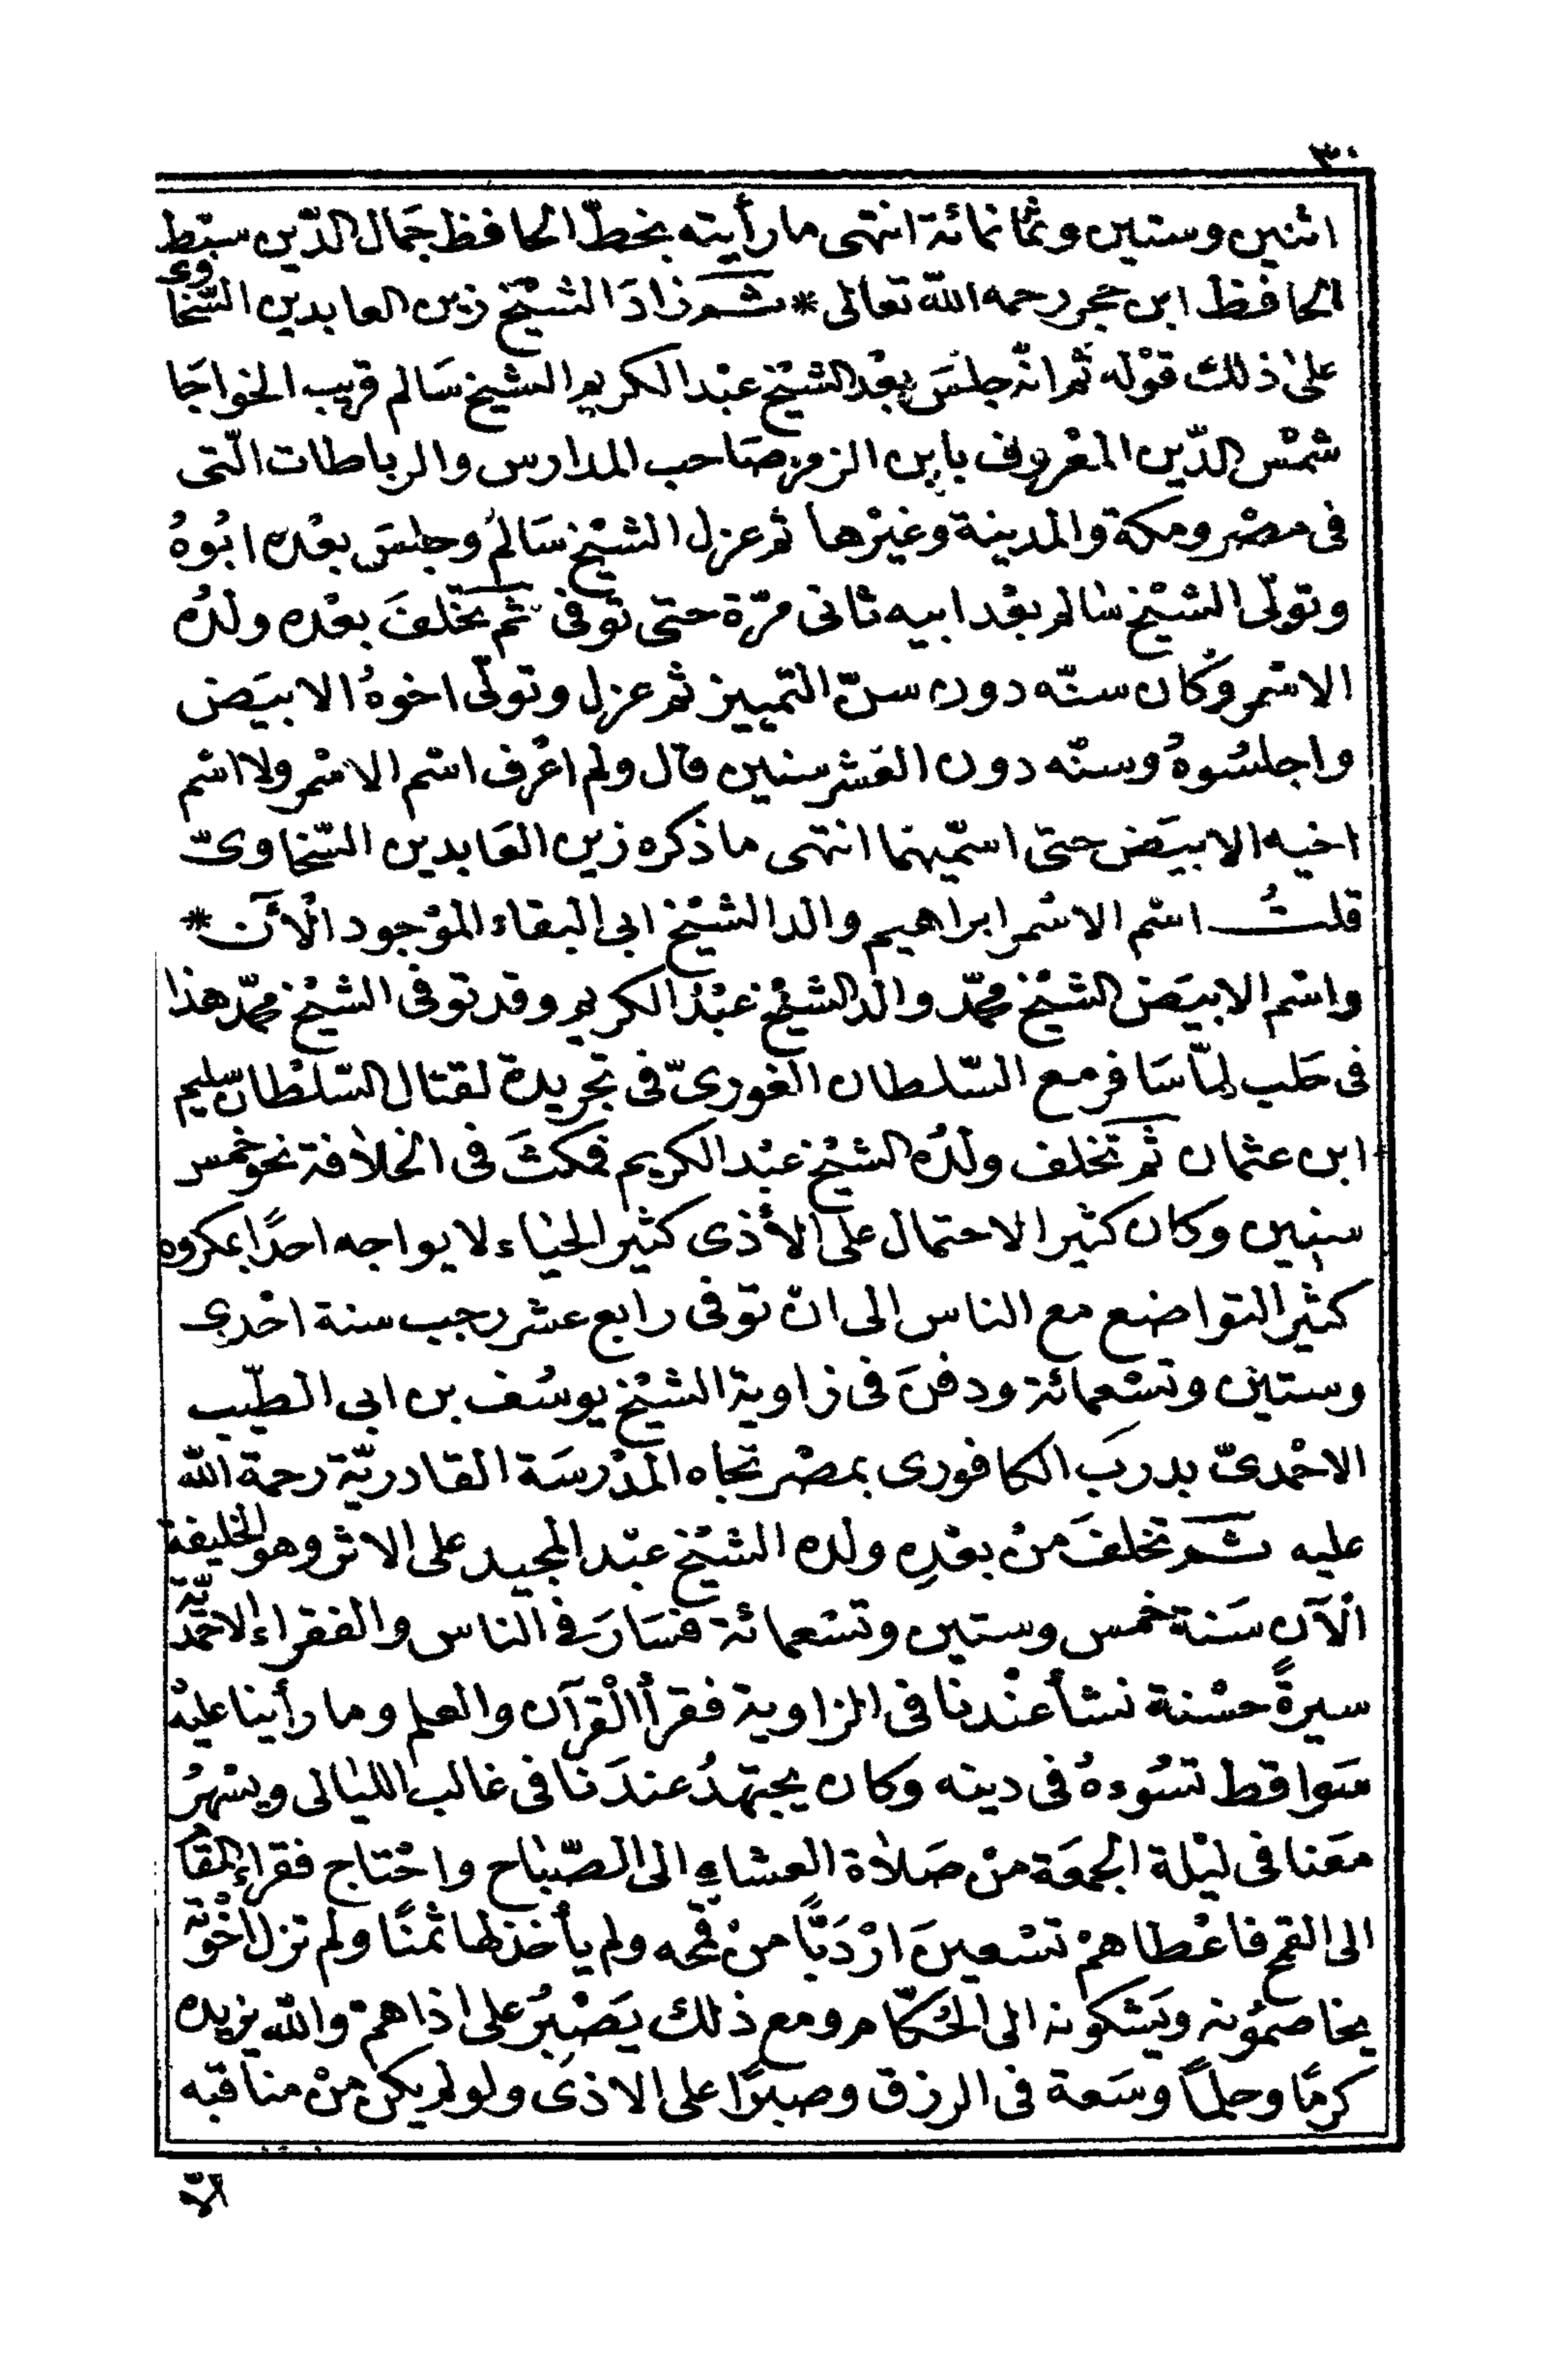 ٣٠
اثنين وستين وثمانمائة انتهى ما رأيته بخطّ الحافظ جمال الدّين سبط
الحافظ ابن حجر رحمه الله تعالى * ثم زادَ الشيْخ زين العابدين السّخاوى
على ذلك قوْله ثم انّه جلسَ بعْد الشيْخ عبْد الكريم الشيخ سَالم قريب الخواجَا
شمْس الدّين المعْروف بابن الزمن صَاحب المدارس والرباطات الّتى
فى مصْر ومكة والمدينة وغيْرها ثم عزل الشيْخ سَالمُ وجلسَ بعْده ابُوهُ
وتولّى الشيْخ سَالم بعْد ابيه ثانى مرّة حتى توفى ثم تخّلفَ بعْده ولدُه
الاسْمر وكان سنّه دون سنّ التمييز ثم عزل وتولّى اخوهُ الابيَض
واجلسُوهُ وسنّه دون العَشر سنين قال ولم اعْرف اسْم الاسْمر ولا اسْم
اخيه الابيَض حتى اسمّيهما انتهى ما ذكره زين العَابدين السّخاوىّ
قلتُ اسْم الاسْمر ابراهيم والد الشيْخ ابى البقاء الموْجود الْآن *
واسْم الابيَض الشيْخ محمّد والد الشيْخ عبْد الكريم وقد توفى الشيْخ محمّد هذا
فى حَلب لمّا سَافر مع السّلطان الغورىّ فى تجريدة لقتال السّلْطان سليم
ابن عثمان ثم تخلف ولدُه الشيْخ عبْد الكريم فمكثَ فى الخلافة نحو خمس
سنين وكان كثير الاحتمال على الأذى كثير الحيَاء لا يواجه احدًا بمكروه
كثير التواضع مع الناس الى انْ توفى رابع عشر رجب سنة احْدى
وستين وتسْعمائة ودفنَ فى زاوية الشيْخ يوسُف بن ابى الطيّب
الاحْمدىّ بدرب الكافورى بمصْر تجاه المدْرسَة القادريّة رحمة الله
عليه ثم تخلفَ منْ بعْدِه ولده الشيْخ عبْد المجيد على الاثر وهو الخليفة
الْآن سَنة خمس وستين وتسْعمائة فسَارَ فى الناس والفقراء الاحْمديّة
سيرةً حسْنة نشأ عنْدنا فى الزاوية فقرأ الْقرآن والعلم وما رأينا عليْه
سَوا قط تسُوءهُ فى دينه وكان يجتهدُ عندَنا فى غالب الليَالى ويسْهرُ
معَنا فى ليْلة الجمعَة منْ صَلاة العشاءِ الى الصّبَاح واحْتاج فقراء المقَام
الى القمح فاعْطاهمْ تسْعينَ ارْدَبًّا منْ قمحه ولم يأخذ لها ثمنًا ولم تزل اخْوته
يخاصمُونه ويَشكونه الى الحُكّام ومع ذلك يَصْبرُ على اذاهمْ والله يزيده
كرمًا وحلمًا وسَعة فى الرزق وصبرًا على الاذى ولو لم يكن منْ مناقبه
الاّ